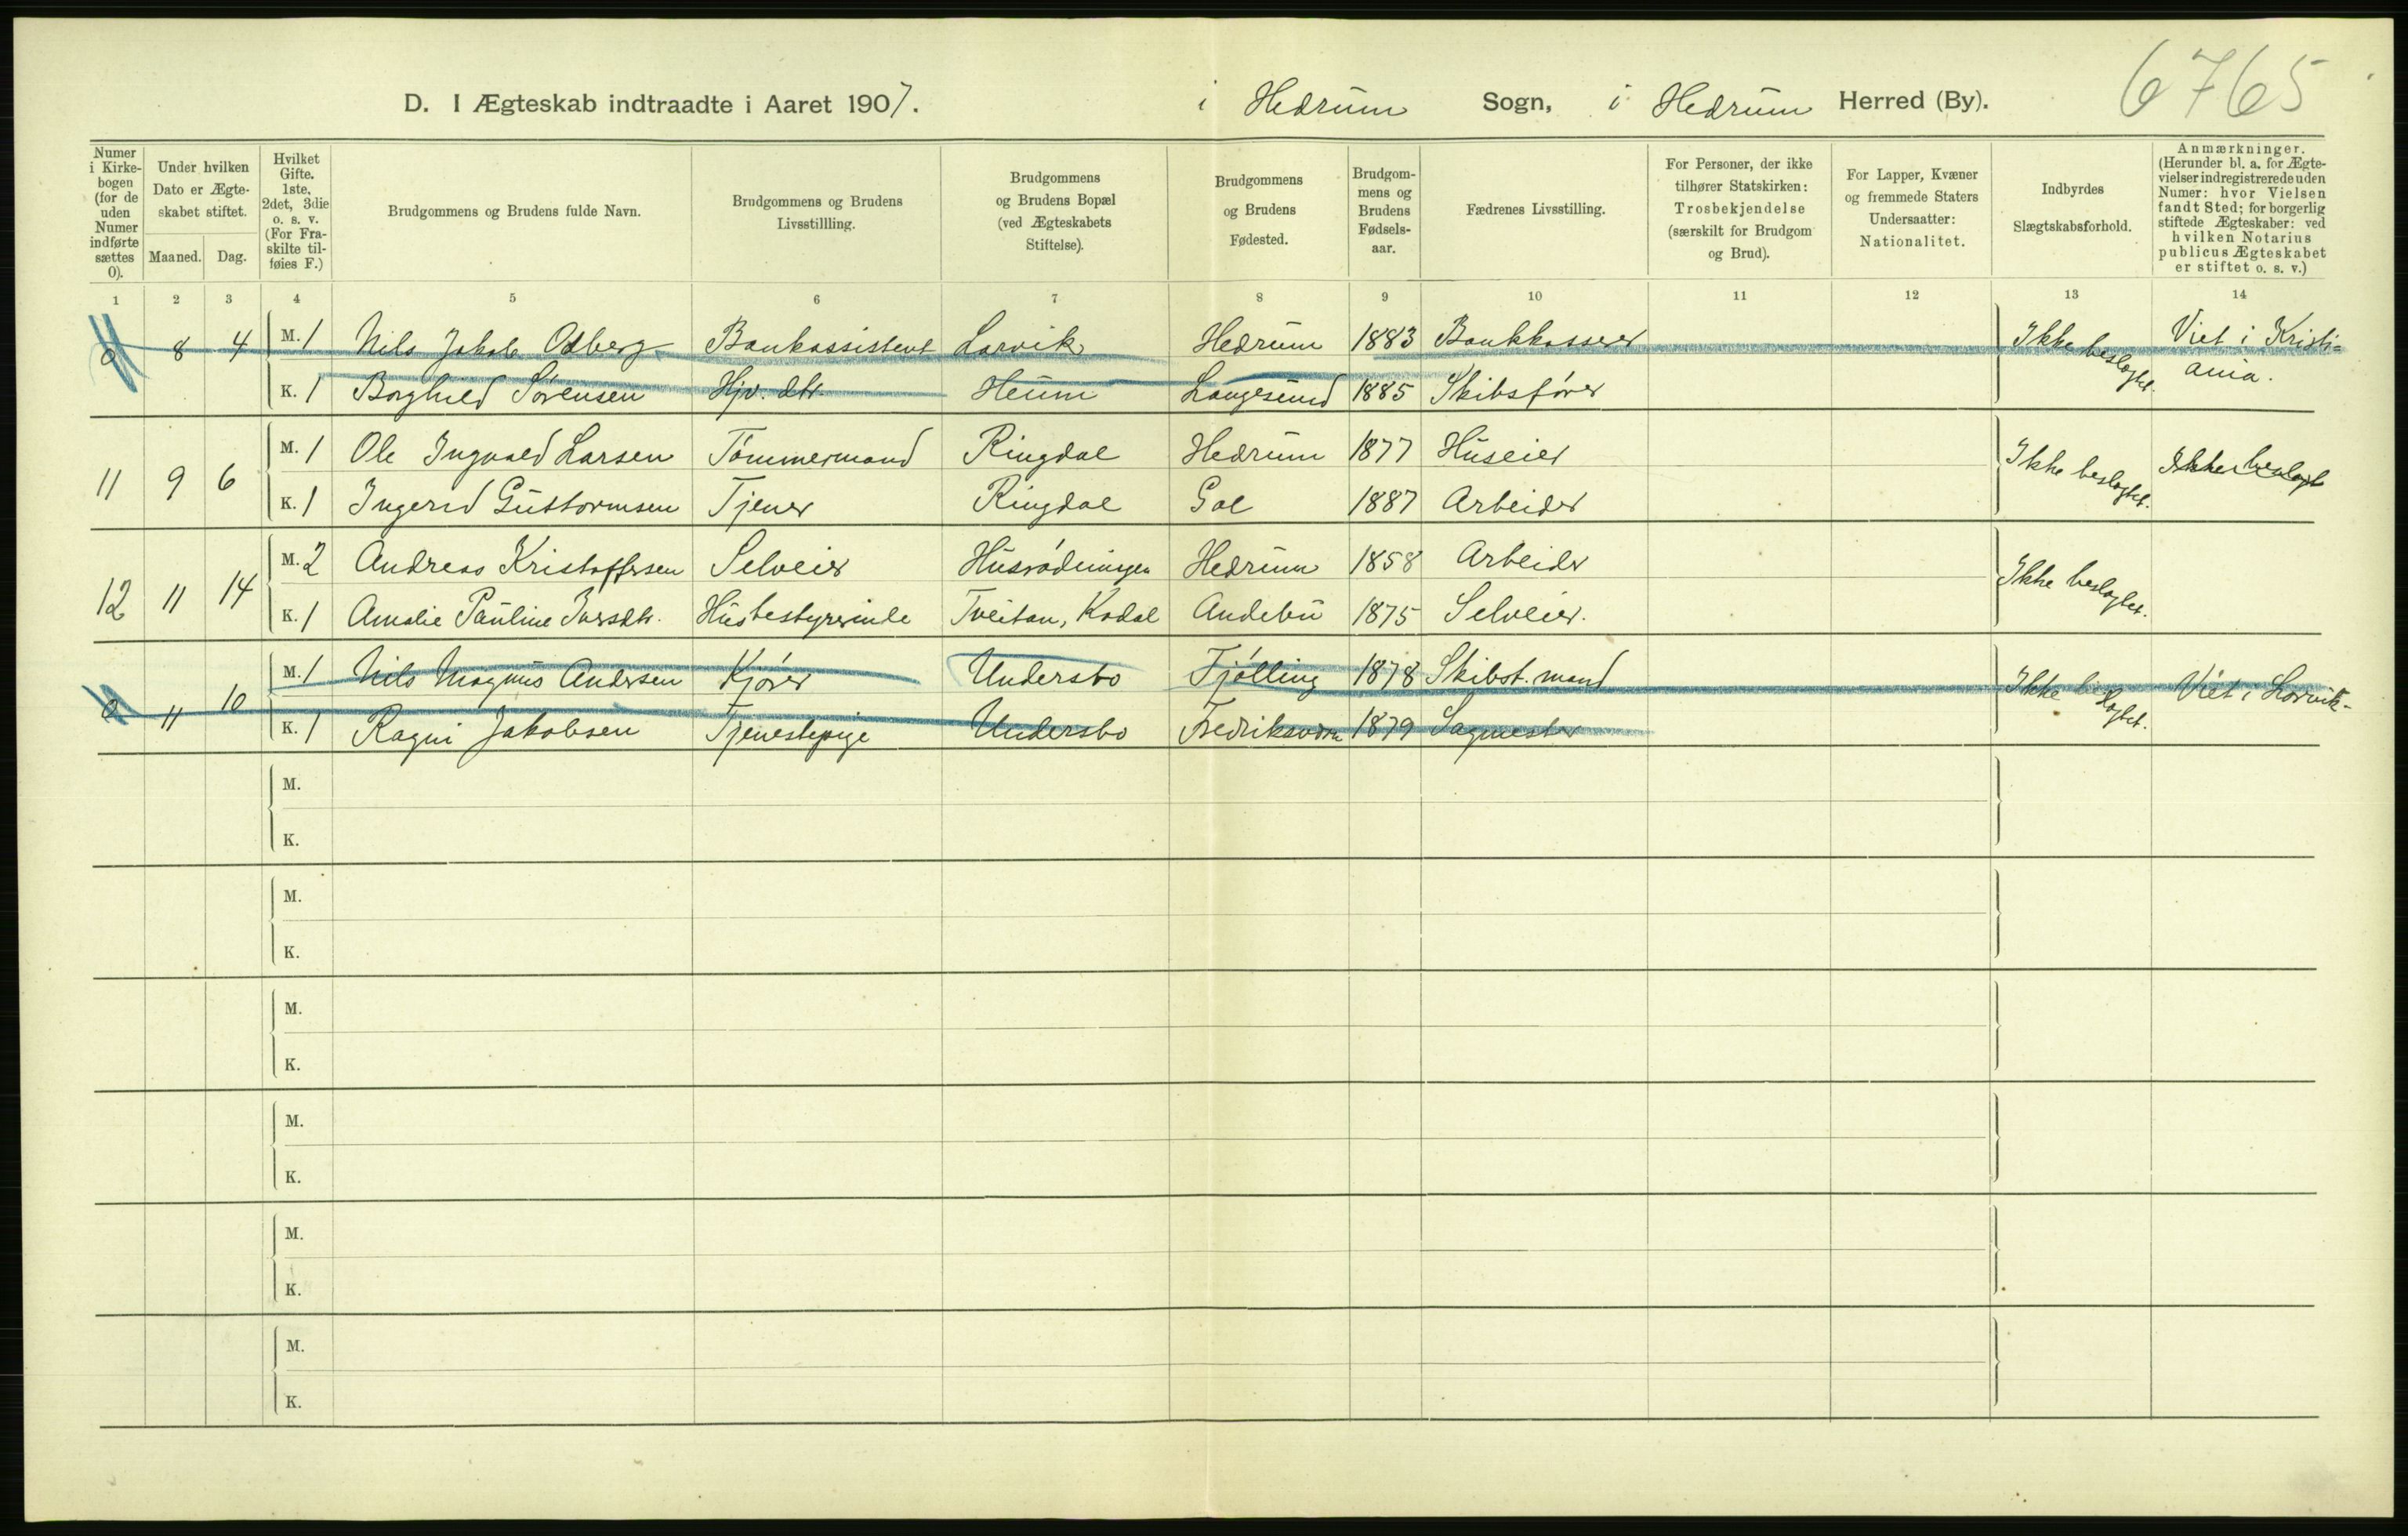 6765
D. I Ægteskab indtraadte i Aaret 1907. i Hedrum Sogn, i Hedrum Herred (By).
Numer i Kirkebogen (for de uden Numer indførte sættes 0).
Under hvilken Dato er Ægteskabet stiftet.
Maaned. Dag.
Hvilket Gifte. 1ste, 2det, 3die o. s. v. (For Fraskilte tilføies F.)
Brudgommens og Brudens fulde Navn.
Brudgommens og Brudens Livsstillling.
Brudgommens og Brudens Bopæl (ved Ægteskabets Stiftelse).
Brudgommens og Brudens Fødested.
Brudgommens og Brudens Fødselsaar.
Fædrenes Livsstilling.
For Personer, der ikke tilhører Statskirken: Trosbekjendelse (særskilt for Brudgom og Brud).
For Lapper, Kvæner og fremmede Staters Undersaatter: Nationalitet.
Indbyrdes Slægtskabsforhold.
Anmærkninger. (Herunder bl. a. for Ægtevielser indregistrerede uden Numer: hvor Vielsen fandt Sted; for borgerlig stiftede Ægteskaber: ved hvilken Notarius publicus Ægteskabet er stiftet o. s. v.)
1 2 3 4 5 6 7 8 9 10 11 12 13 14
0 8 4 M. 1 Nils Jakob Odberg Bankassistent Larvik Hedrum 1883 Bankkasserer Ikke beslagtet. Viet i Kristi=ania.
K. 1 Borghild Sørensen Hjv. dtr. Heum Langesund 1885 Skibsfører
11 9 6 M. 1 Ole Ingvald Larsen Tømmermand Ringdal Hedrum 1877 Huseier Ikke beslagtet. Ikke beslagt
K. 1 Ingerid Guttormsen Tjener Ringdal Gol 1887 Arbeider
12 11 14 M. 2 Andreas Kristoffersen Selveier Hedrum 1858 Arbeider Ikke beslagtet.
K. 1 Amalie Pauline Iversdtr. Husbestyrerinde Tveitan, Kodal Andebu 1875 Selveier.
0 11 10 M. 1 Nils Magnus Andersen Kjører Undersbo Tjølling 1878 Skibst.mand Ikke beslagtet. Viet i Larvik-
K. 1 Ragni Jakobsen Tjenestepige Undersbo Fredriksværn 1879 Sagmester
M.
K.
M.
K.
M.
K.
M.
K.
M.
K.
M.
K.